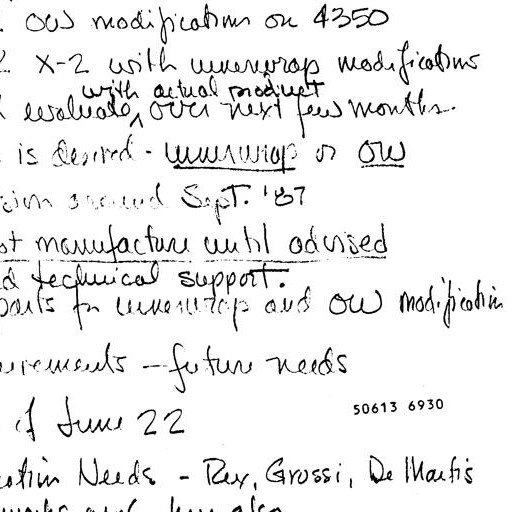 . OW modifications on 4350
2. X-2 with innerwrap modifications
with actual product
evaluate, over next few months.
is desired - innerwrap or OW
around Sept. '87
manufacture until advised
technical support.
parts for innerwrap and OW modification
urements - future needs
of June 22
50613 6930
ation Needs - Rex, Grossi, De Martis
also